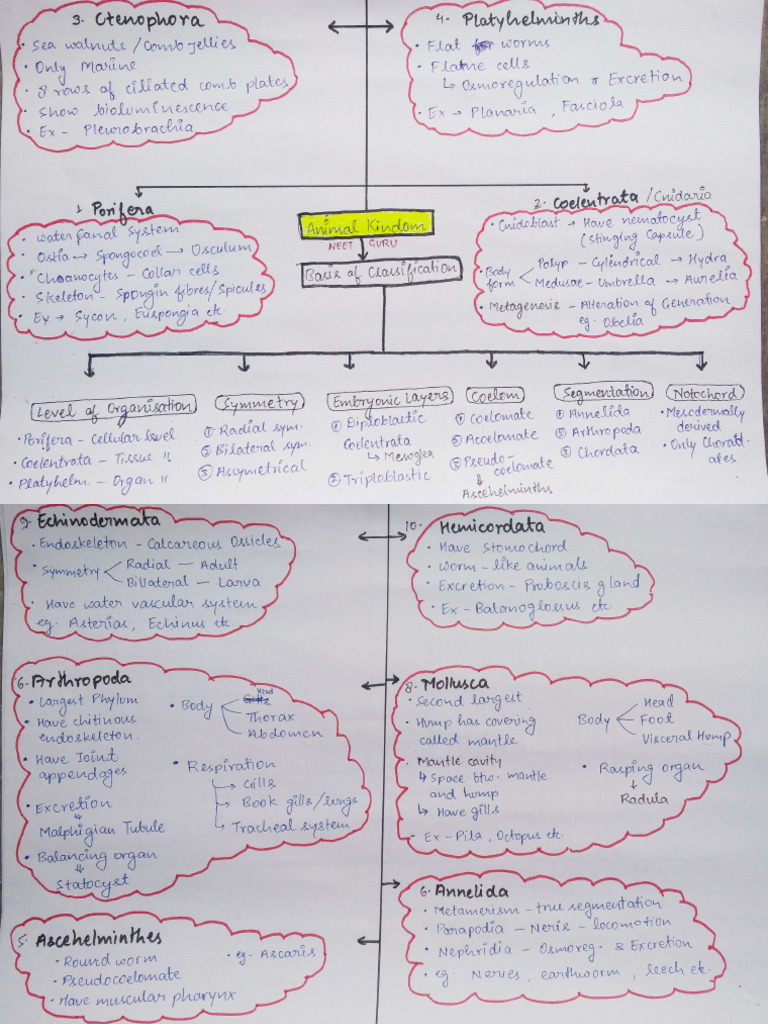 3. Ctenophora
· Sea walnuts / Comb Jellies
· Only Marine
· 8 rows of ciliated comb plates
· Show bioluminescence
· Ex - Pleurobrachia
4. Platyhelminths
· Flat worms
· Flame cells
↳ Osmoregulation & Excretion
· Ex → Planaria, Fasciola
1. Porifera
· water canal System
· Ostia → Spongocoel → Osculum
· Choanocytes - Collar cells
· Skeleton - Spongin fibres/Spicules
· Ex → Sycon, Euspongia etc
Animal Kindom
NEET GURU
Basis of Classification
2. Coelentrata / Cnidaria
· Cnidoblast → Have nematocyst
(Stinging Capsule)
· Body form
Polyp - Cylindrical → Hydra
Medusae - Umbrella → Aurelia
· Metagenesis - Alteration of Generation
eg. Obelia
Level of Organisation
· Porifera - Cellular level
· Coelentrata - Tissue "
· Platyhelm. - Organ "
Symmetry
① Radial sym.
② Bilateral sym.
③ Assymetrical
Embryonic Layers
① Diploblastic
Coelentrata
↳ Mesoglea
② Triploblastic
Coelom
① Coelomate
② Accelomate
③ Pseudo-
coelomate
↓
Ascehelminths
Segmentation
① Annelida
② Arthropoda
③ Chordata
Notochord
· Mesodermally
derived
· Only Chordates
9. Echinodermata
· Endoskeleton - Calcareous Ossicles
· Symmetry
Radial - Adult
Billateral - Larva
· Have water vascular system
eg. Asterias, Echinus etc.
10. Hemicordata
· Have Stomochord
· Worm - like animals
· Excretion - Proboscis gland
· Ex - Balanoglossus etc
6. Arthropoda
· Largest Phylum
· Have chitinous
endoskeleton.
· Have Joint
appendages
· Excretion
↓
Malphigian Tubule
· Balancing organ
↓
Statocyst
· Body
Head
Thorax
Abdomen
· Respiration
→ Gills
→ Book gills/lungs
→ Tracheal system
8. Mollusca
· Second largest
· Hump has covering
called mantle
· Mantle cavity
↳ Space btw. mantle
and hump
↳ Have gills
· Ex - Pila, Octopus etc.
Body
Head
Foot
Visceral Hump
· Rasping organ
↓
Radula
5. Ascehelminthes
· Round worm
· Pseudocoelomate
· Have muscular pharynx
· eg. Ascaris
6. Annelida
· Metamerism - true segmentation
· Parapodia - Neris - locomotion
· Nephridia - Osmoreg. & Excretion
· eg. Nerves, earthworm, leech etc.